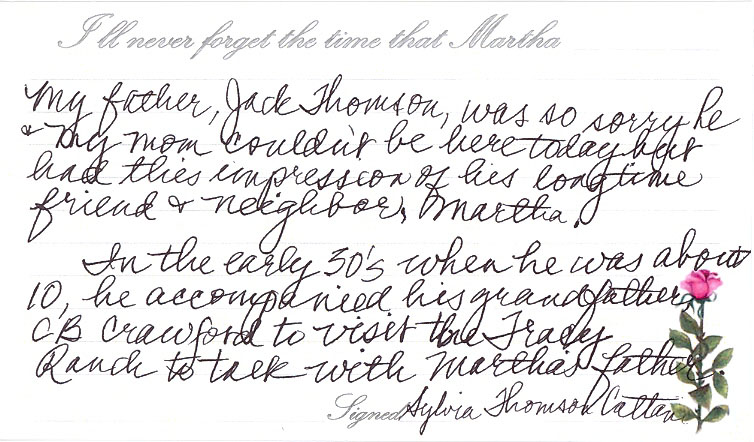 I'll never forget the time that Martha
My father, Jack Thomson, was so sorry he
& my mom couldn't be here today but
had this impression of his longtime
friend & neighbor, Martha.
In the early 30's when he was about
10, he accompanied his grandfather,
CB Crawford to visit the Tracy
Ranch to talk with Martha's father.
Signed Sylvia Thomson Cattani